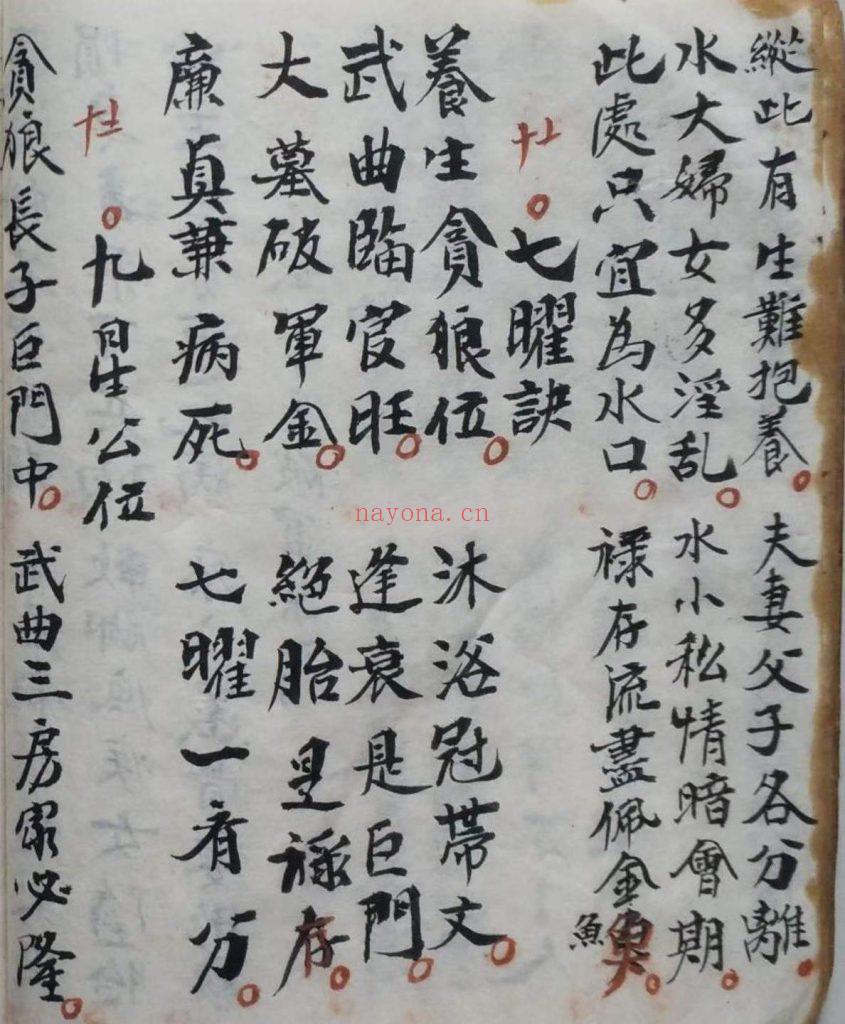 縱此有生難抱養。夫妻父子各分離。
水大婦女多淫乱。水小私情暗會期。
此處只宜為水口。禄存流盡佩金魚
七曜訣
養生貪狼位。沐浴冠帶文。
武曲臨官旺。逢衰是巨門。
大墓破軍金。絕胎是祿存。
廉貞兼病死。七曜一看分。
九星公位
貪狼長子巨門中。武曲三房家必隆。
nayona.cn